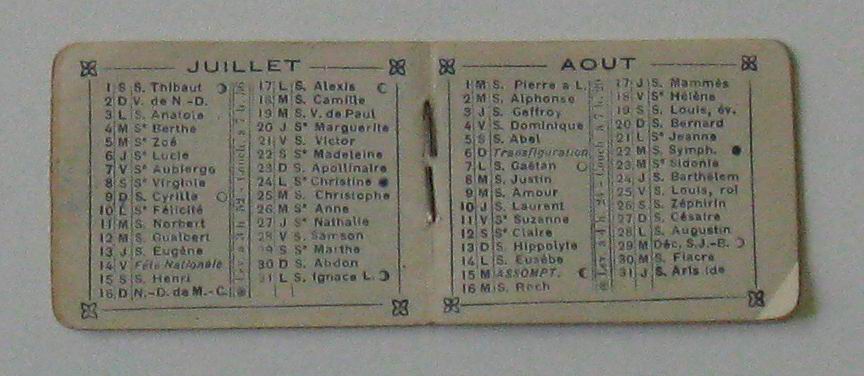 JUILLET
1 S S. Thibaut
2 D V. de N.-D.
3 L S. Anatole
4 M Sᵉ Berthe
5 M Sᵉ Zoé
6 J Sᵉ Lucie
7 V Sᵉ Aubierge
8 S Sᵉ Virginie
9 D S. Cyrille
10 L Sᵉ Félicité
11 M S. Norbert
12 M S. Gualbert
13 J S. Eugène
14 V Fête Nationale
15 S S. Henri
16 D N.-D. du M.-C.
17 L S. Alexis
18 M S. Camille
19 M S. V. de Paul
20 J Sᵉ Marguerite
21 V S. Victor
22 S Sᵉ Madeleine
23 D S. Apollinaire
24 L Sᵉ Christine
25 M S. Christophe
26 M Sᵉ Anne
27 J Sᵉ Nathalie
28 V S. Samson
29 S Sᵉ Marthe
30 D S. Abdon
31 L S. Ignace L.
AOUT
1 M S. Pierre a L.
2 M S. Alphonse
3 J S. Geffroy
4 V S. Dominique
5 S S. Abel
6 D Transfiguration
7 L S. Gaëtan
8 M S. Justin
9 M S. Amour
10 J S. Laurent
11 V Sᵉ Suzanne
12 S Sᵉ Claire
13 D S. Hippolyte
14 L S. Eusèbe
15 M ASSOMPT.
16 M S. Roch
17 J S. Mammès
18 V Sᵉ Hélène
19 S S. Louis, év.
20 D S. Bernard
21 L Sᵉ Jeanne
22 M S. Symph.
23 M Sᵉ Sidonie
24 J S. Barthélem
25 V S. Louis, roi
26 S S. Zéphirin
27 D S. Césaire
28 L S. Augustin
29 M Déc. S.J.-B.
30 M S. Fiacre
31 J S. Aristide